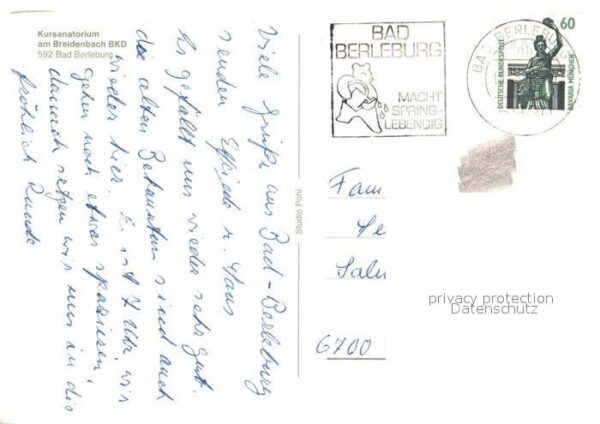 Kursanatorium
am Breidenbach BKD
592 Bad Berleburg
Viele Grüße aus Bad-Berleburg
senden Elfriede u. Hans
Es gefällt uns wieder sehr gut.
die alten Bekannten sind auch
wieder hier. Es ist 7 Uhr, wir
gehen noch etwas spazieren,
danach setzen wir uns in die
fröhlich Runde
Studio Pohl
BAD
BERLEBURG
MACHT
SPRING-
LEBENDIG
BAD BERLEBURG
60
DEUTSCHE BUNDESPOST
BAVARIA MÜNCHEN
Fam
6700
privacy protection
Datenschutz